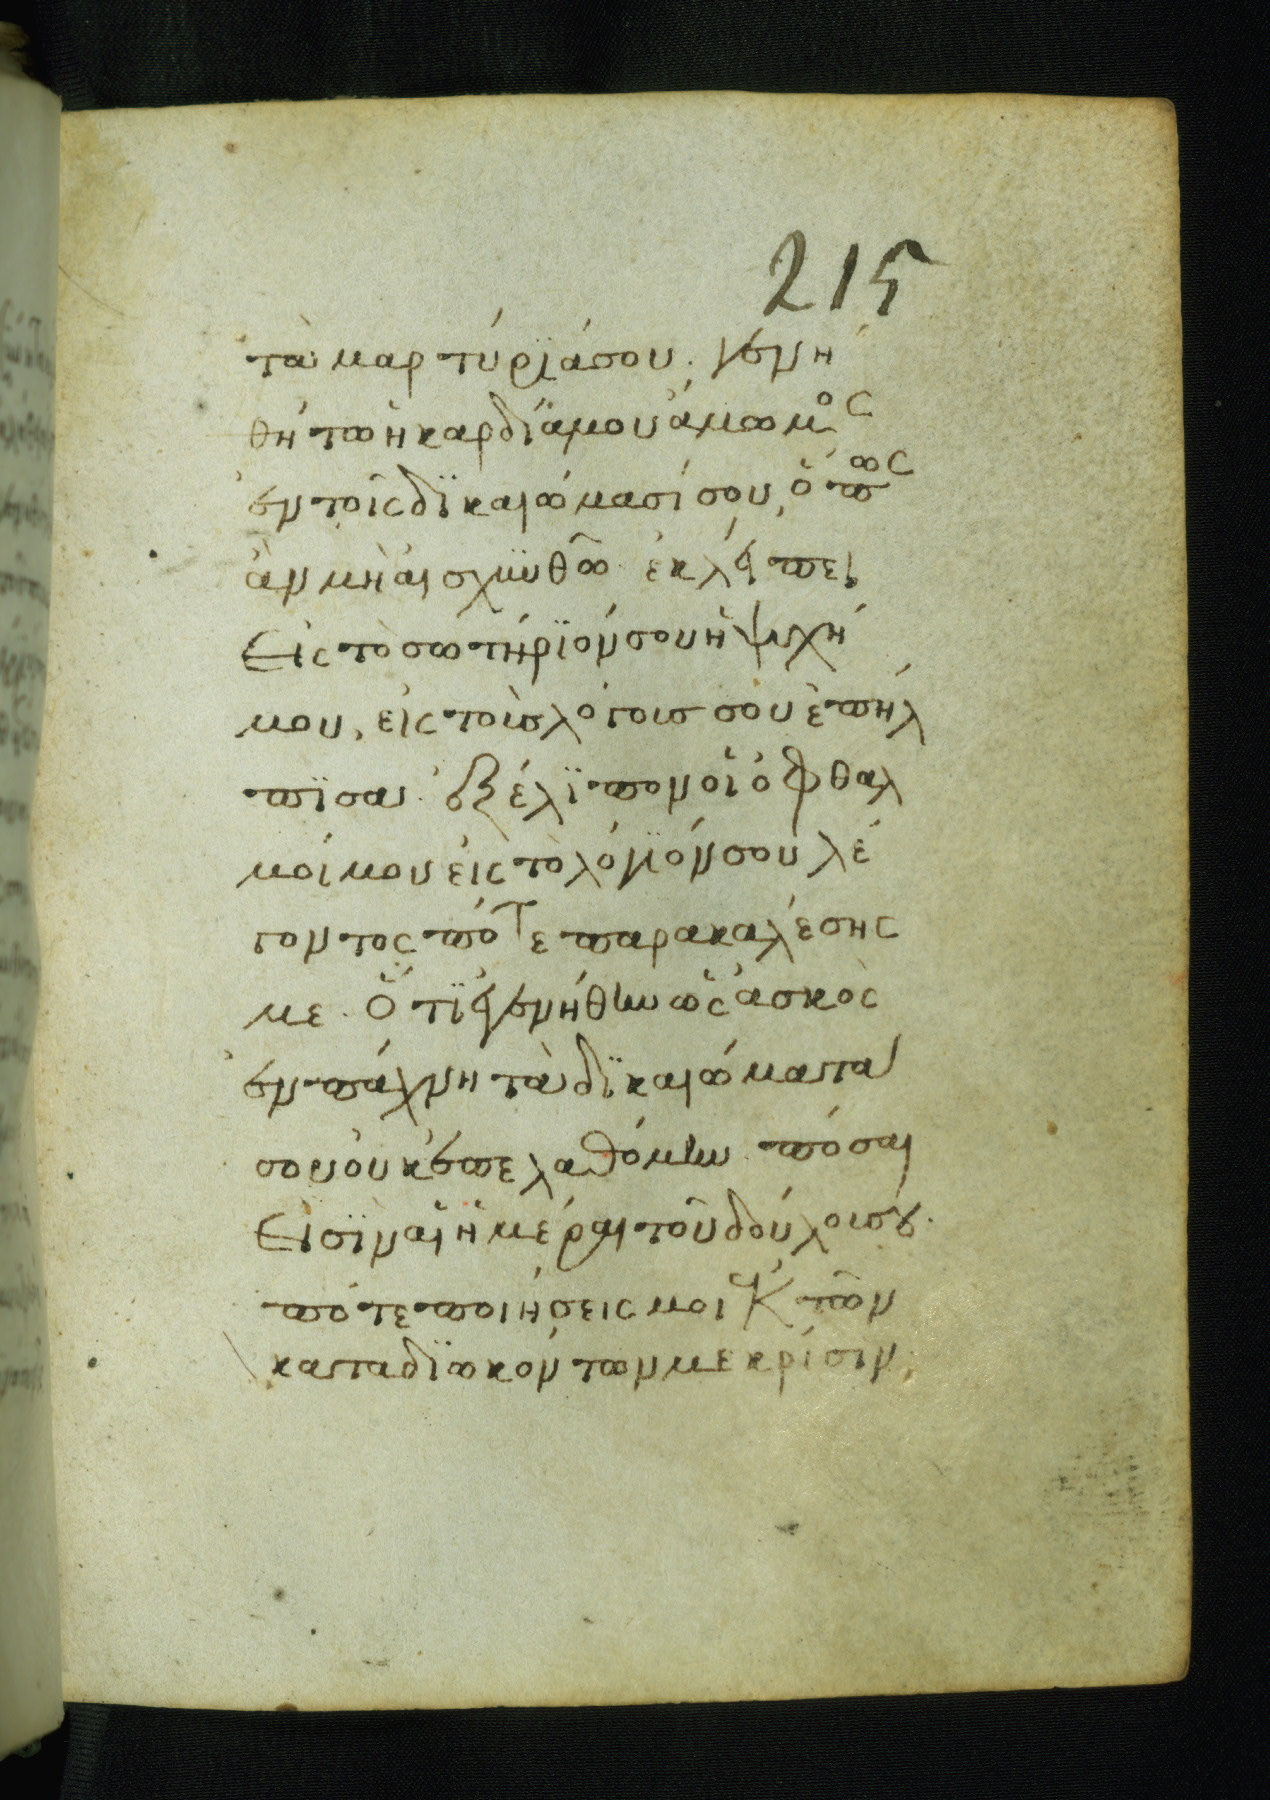 215
τὰ μαρτύρϊά σου. γενη
θήτω ἡ καρδΐα μου ἄμωμος
ἐν τοῖς δϊκαιώμασί σου, ὅπως
ἂν μὴ αἰσχϋνθῶ. ἐκλείπει
εἰς τὸ σωτήρϊόν σου ἡ ψυχή
μου, εἰς τοὺς λόγους σου ἐπήλ
πϊσα. ἐξέλϊπον οἱ ὀφθαλ
μοί μου εἰς τὸ λόγϊόν σου λέ
γοντες πότε παρακαλέσης
με. Ὅτϊ ἐγενήθην ὡς ἀσκὸς
ἐν πάχνη τὰ δϊκαιώματα
σου οὐκ ἐπελαθόμην. πόσαι
εἰσϊν αἱ ἡμέραι τοῦ δούλου σου.
πότε ποιήσεις μοι ἐκ τῶν
καταδϊωκόντων με κρίσιν,